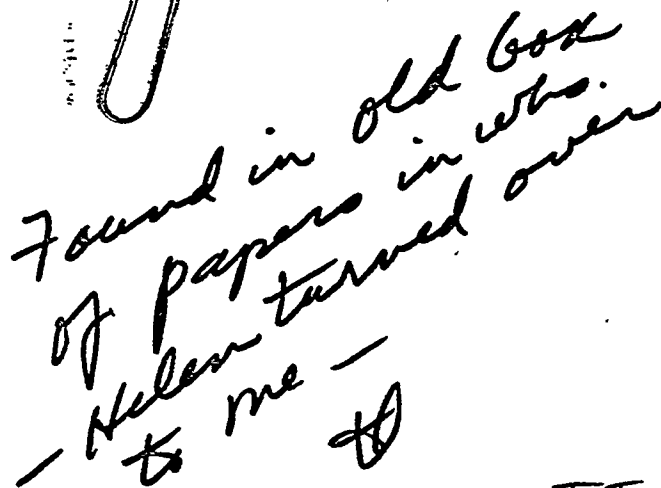 Found in old box
of papers in whs.
- Helen turned over
to me -